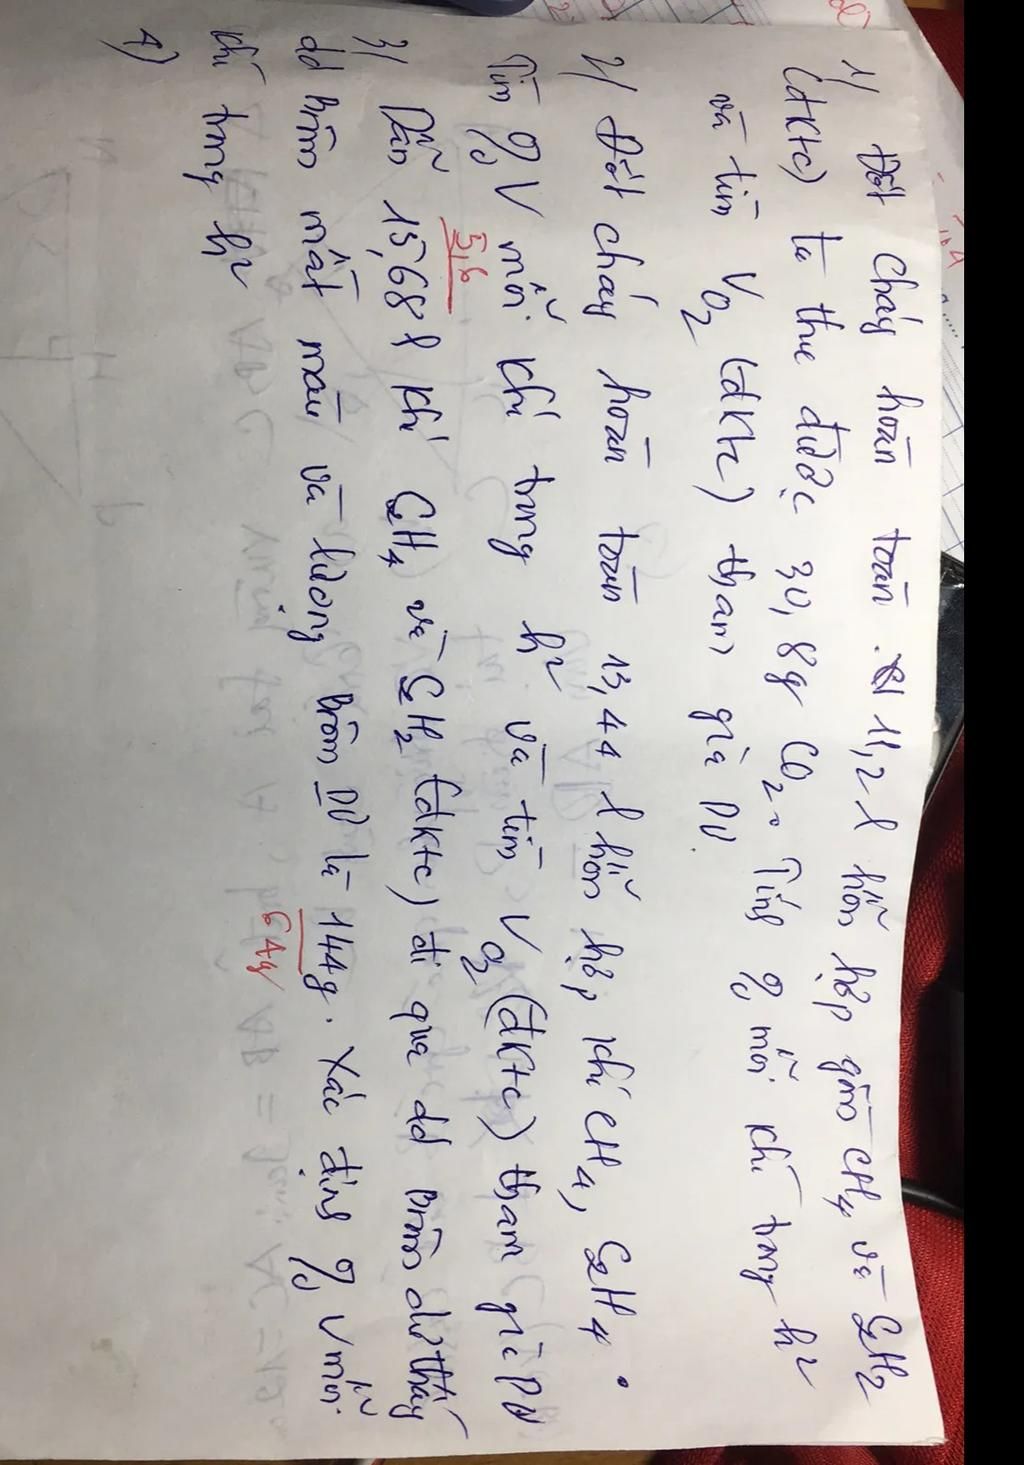 1) Đốt cháy hoàn toàn 11,2 l hỗn hợp gồm CH4 và C2H2
(đktc) ta thu được 30,8g CO2. Tính % mỗi khí trong h²
và tìm VO2 (đktc) tham gia PƯ.
2) Đốt cháy hoàn toàn 13,44 l hỗn hợp khí CH4, C2H4.
Tìm % V mỗi khí trong h² và tìm VO2 (đktc) tham gia PƯ
5,6
3) Dẫn 15,68 l khí C2H4 và C2H2 (đktc) đi qua dd Brôm dư thấy
dd Brôm mất màu và lượng Brôm PƯ là 144g. Xác định % V mỗi
64g
khí trong h²
4)